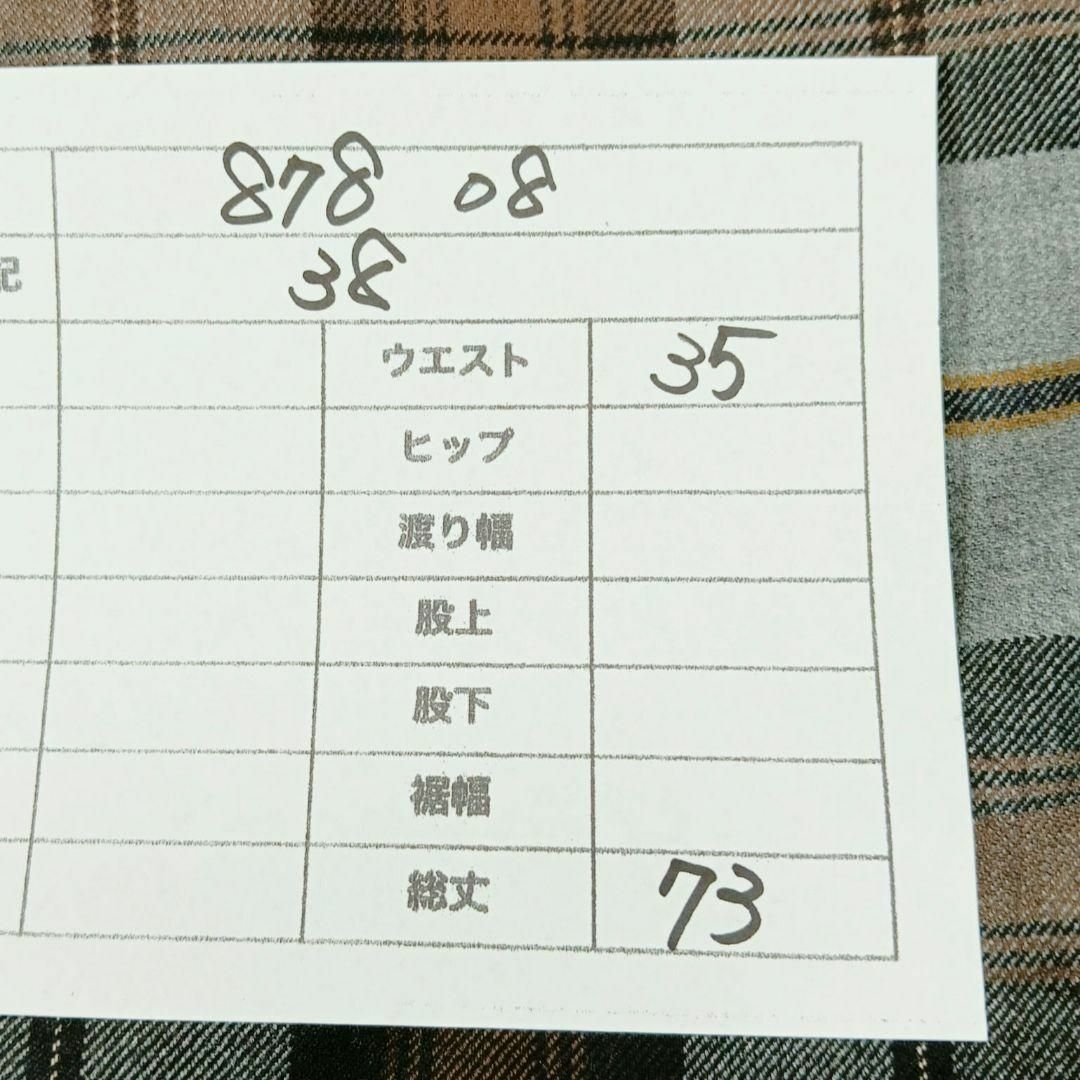 878 08
記 38
ウエスト 35
ヒップ
渡り幅
股上
股下
裾幅
総丈 73